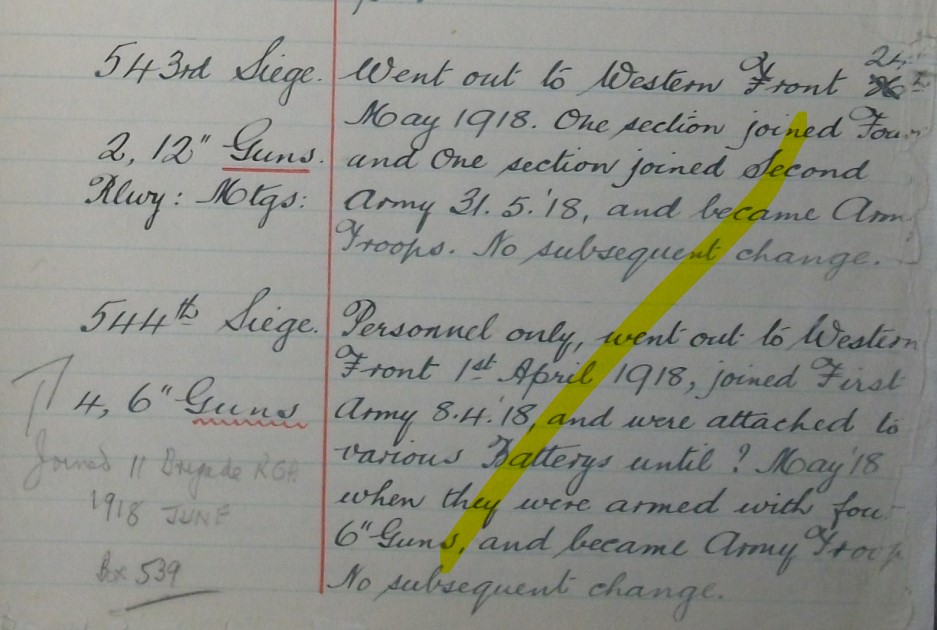 543rd Siege. Went out to Western Front 24
May 1918. One section joined Four
2, 12" Guns. and One section joined Second
Rlwy: Mtgs: Army 31.5.'18, and became Arm
Troops. No subsequent change.
544th Siege. Personnel only, went out to Western
Front 1st April 1918, joined First
4, 6" Guns Army 8.4.'18, and were attached to
various Batterys until ? May '18
Joined 11 Brigade RGA
when they were armed with four
1918 JUNE
6" Guns, and became Army Troop
Box 539
No subsequent change.